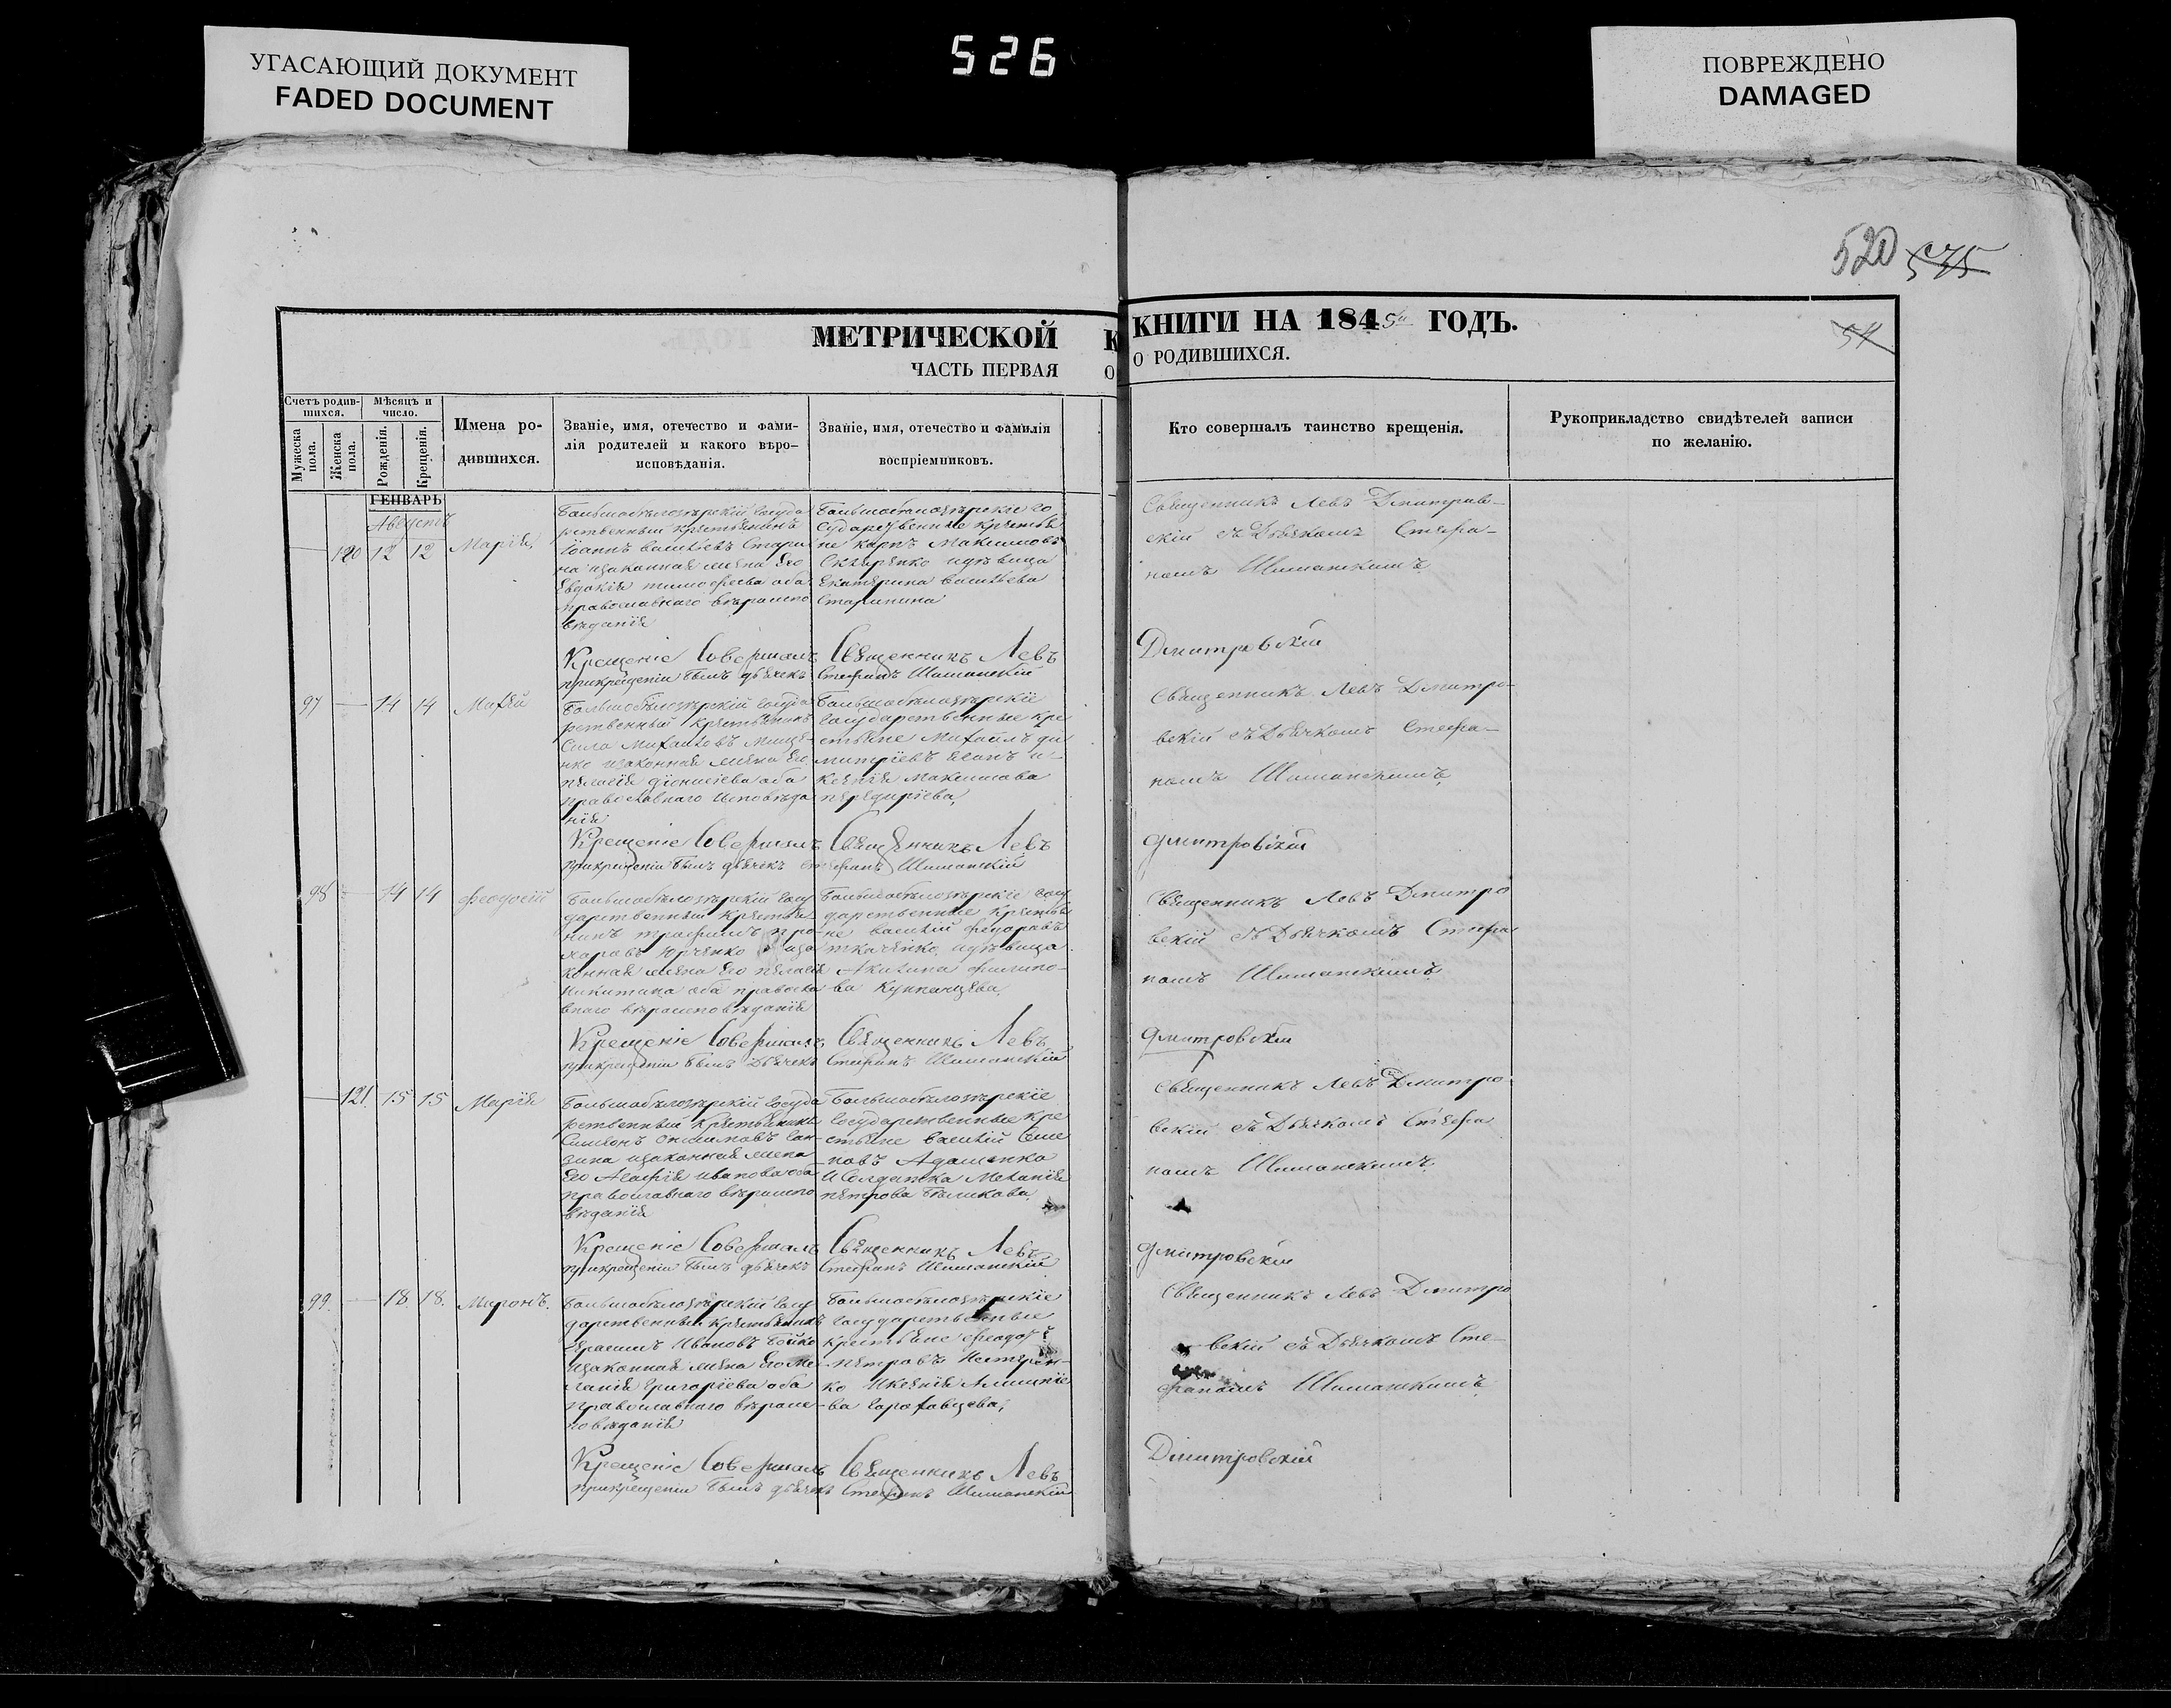 УГАСАЮЩИЙ ДОКУМЕНТ
FADED DOCUMENT
526
ПОВРЕЖДЕНО
DAMAGED
520 575
МЕТРИЧЕСКОЙ К
ЧАСТЬ ПЕРВАЯ О
КНИГИ НА 1845 ГОДЪ.
О РОДИВШИХСЯ.
54
Счетъ родив-
шихся.
Мужеска
пола.
Женска
пола.
Мѣсяцъ и
число.
Рожденія.
Крещенія.
Имена ро-
дившихся.
Званіе, имя, отечество и фами-
лія родителей и какого вѣро-
исповѣданія.
Званіе, имя, отечество и фамилія
воспріемниковъ.
Кто совершалъ таинство крещенія.
Рукоприкладство свидѣтелей записи
по желанію.
ГЕНВАРЬ
Августъ
120 12 12 Марія,
Большобѣлозѣрскій госуда
рственный крестьянинъ
Іоаннъ Васильевъ Стари
на изаконная жена его
Евдокія тимофеева оба
православнаго вѣроиспо
вѣданія
Большобѣлозѣрскіе го
сударственные крестья
не карпъ Максимовъ
идѣвица
Екатерина васильева
Старинина
Священникъ Левъ Дмитров-
скій съ Дьячкомъ Стефа-
номъ Шиманскимъ
Крещеніе Совершалъ Священникъ Левъ Дмитровскій
прикрещеніи былъ дьячекъ Стефанъ Шиманскій
97 — 14 14
Большобѣлозѣрскій госуда
рственный крестьянинъ
Сила Михайловъ Мище-
нко изаконная жена его
пелагія діонисіева оба
православнаго исповѣда
нія
Большобѣлозѣрскіе
государственные кре
стьяне Михаилъ ди
митріевъ и
ксенія Максимова
Священникъ Левъ Дмитро-
вскій съ Дьячкомъ Стефа-
номъ Шиманскимъ
Крещеніе Совершалъ Священникъ Левъ Дмитровскій
прикрещеніи былъ дьячекъ Стефанъ Шиманскій
98 — 14 14 Феодосій
Большобѣлозѣрскій госу
дарственный крестья
нинъ трофимъ про-
харовъ Юрченко иза
конная жена его пелагія
Никитина оба правосла
внаго вѣроисповѣданія
Большобѣлозѣрскіе госу
дарственные крестья
не василій федоровъ
ткаченко, идѣвица
Акилина филипо-
ва
Священникъ Левъ Дмитро
вскій съ Дьячкомъ Стефа
номъ Шиманскимъ
Крещеніе Совершалъ Священникъ Левъ Дмитровскій
прикрещеніи былъ Дьячекъ Стефанъ Шиманскій
— 121. 15 15 Марія
Большобѣлозѣрскій госуда
рственный крестьянинъ
Симеонъ
изаконная жена
его Агафія иванова оба
православнаго вѣроиспо
вѣданія
Большобѣлозѣрскіе
государственные кре
стьяне василій Семе
новъ Адаменко
и Солдатка Меланія
петрова бѣликова
Священникъ Левъ Дмитро
вскій съ Дьячкомъ Стефа
номъ Шиманскимъ
Крещеніе Совершалъ Священникъ Левъ Дмитровскій
прикрещеніи былъ дьячекъ Стефанъ Шиманскій
99. — 18. 18. Миронъ.
Большобѣлозѣрскій госу
дарственный крестьянинъ
Герасимъ Ивановъ бойко
изаконная жена его ме
ланія григоріева оба
православнаго вѣроис
повѣданія
Большобѣлозѣрскіе
государственные
крестьяне феодоръ
петровъ Нестерен-
ко иксенія
ва
Священникъ Левъ Дмитро
вскій съ Дьячкомъ Сте-
фаномъ Шиманскимъ
Крещеніе Совершалъ Священникъ Левъ Димитровскій
прикрещеніи былъ дьячекъ Стефанъ Шиманскій